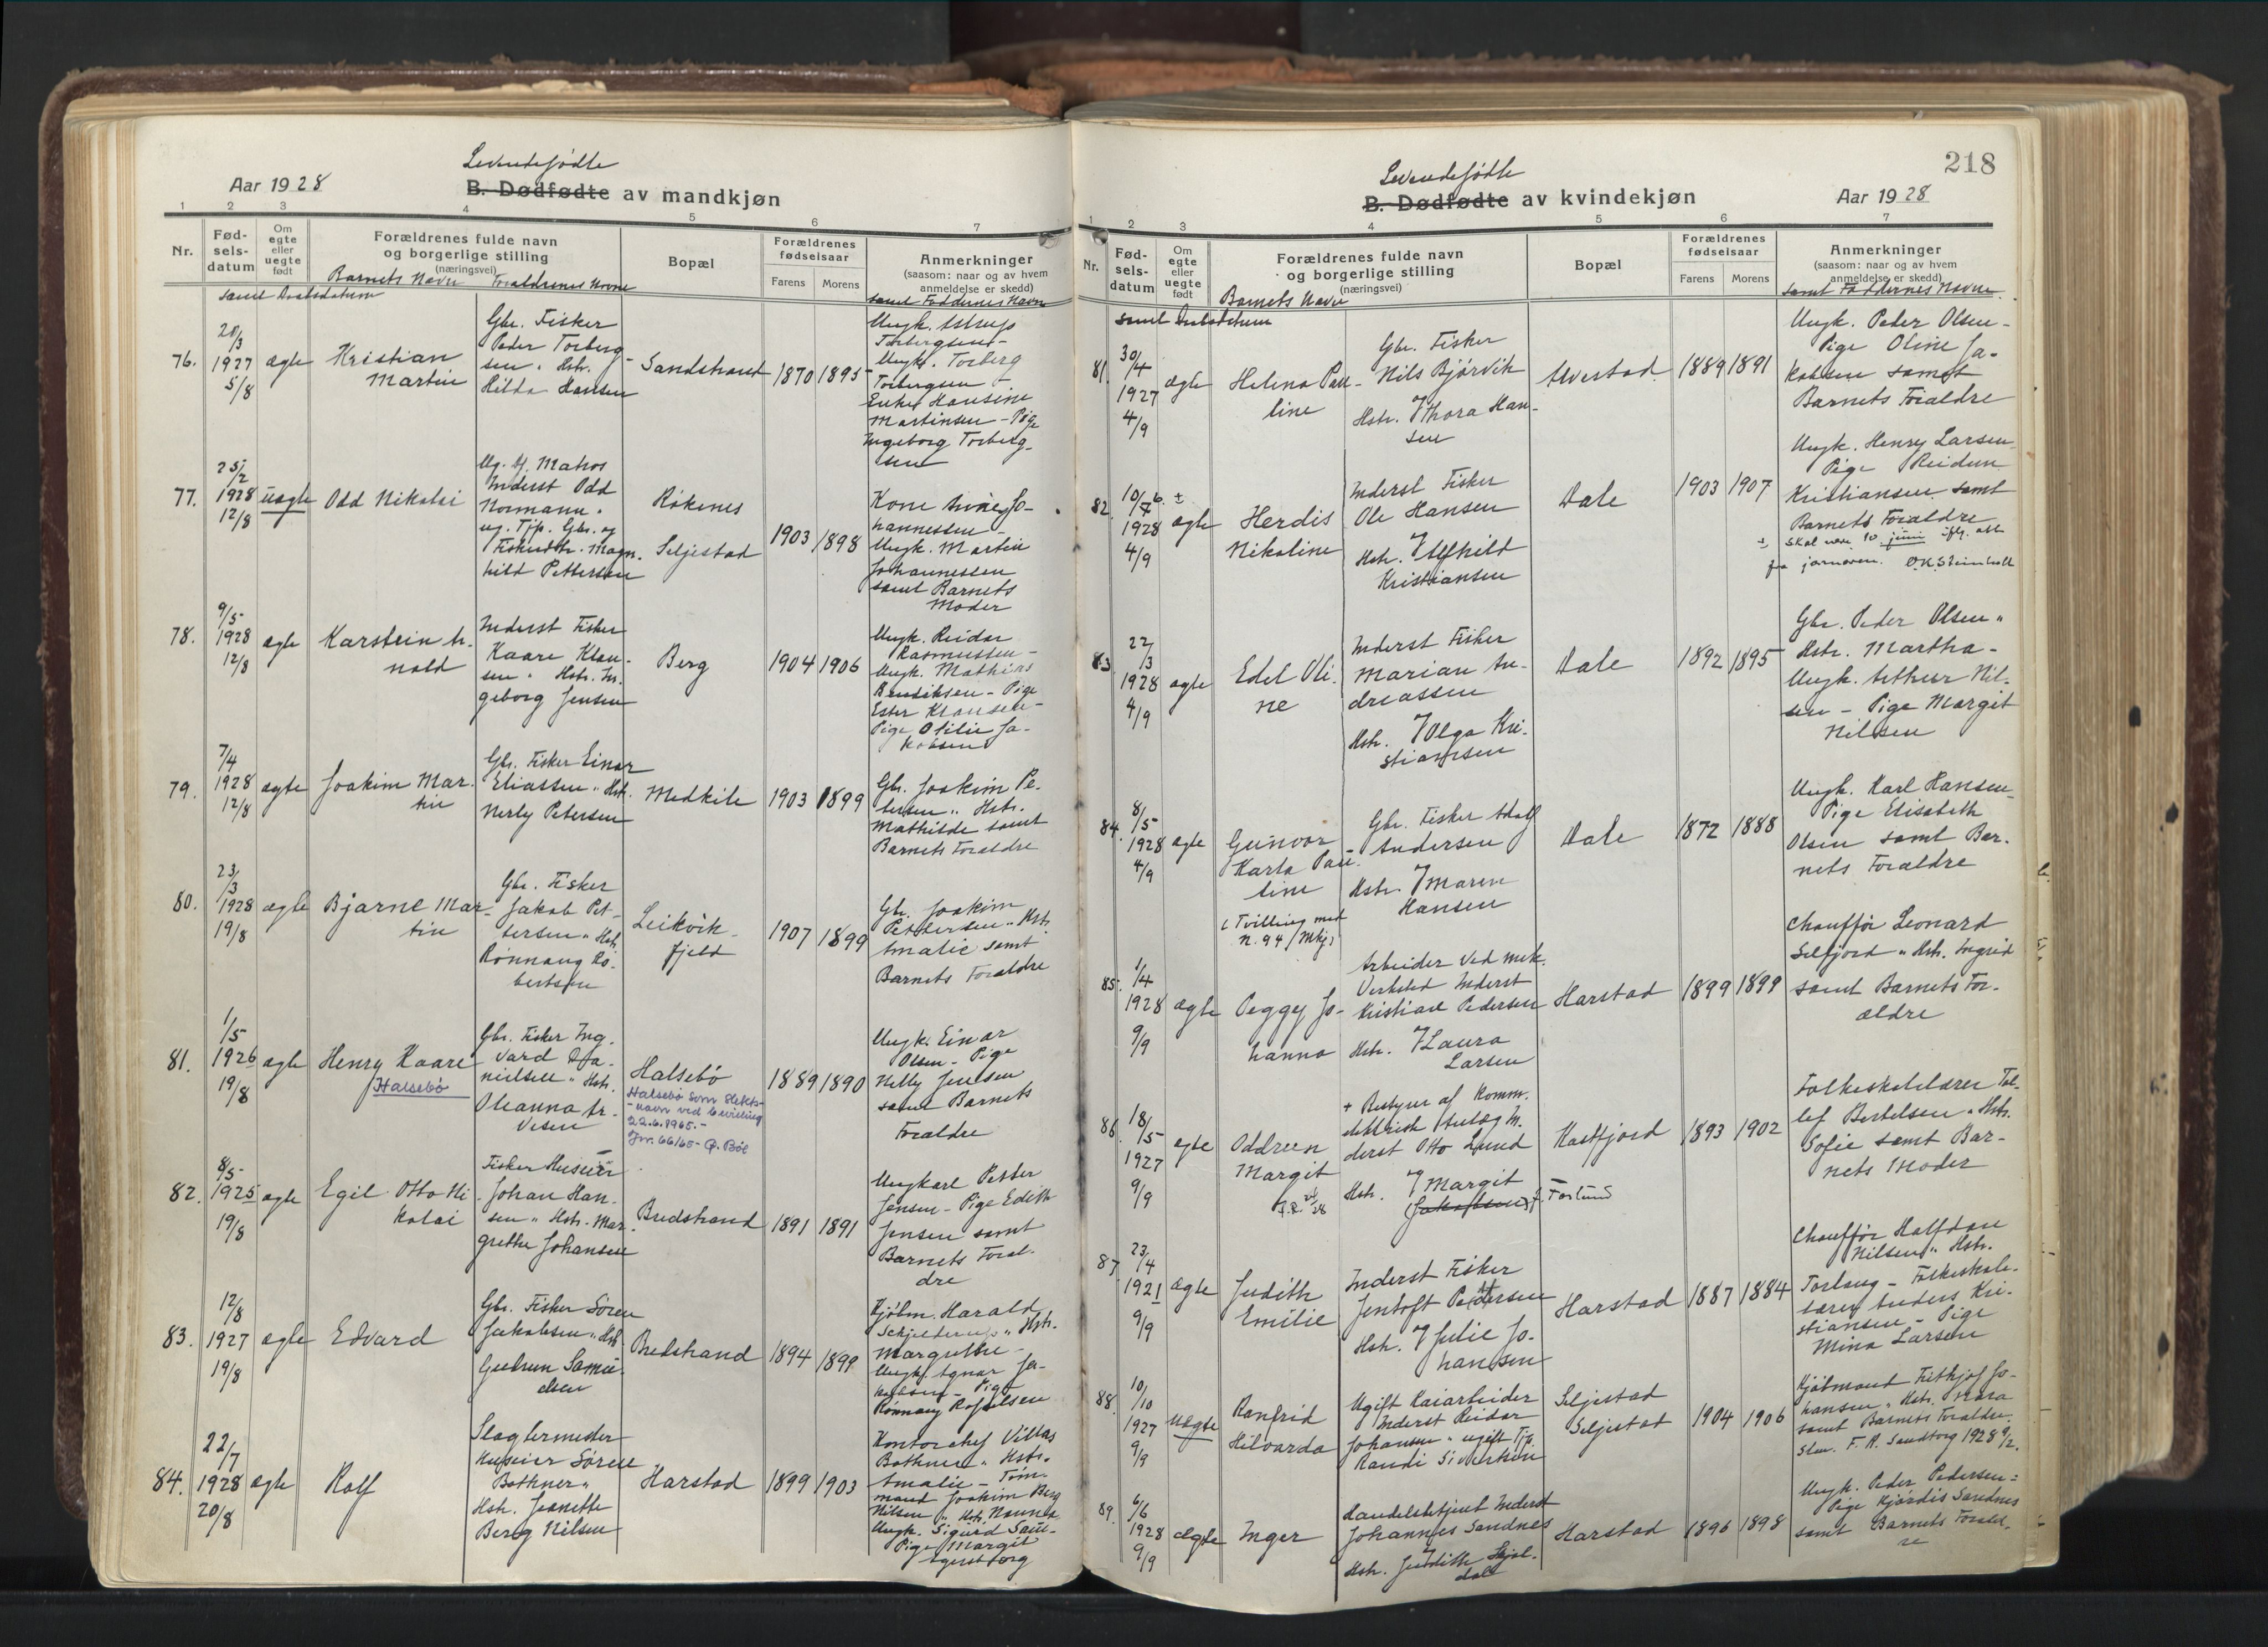 Levendefödte
Aar 1928
B. Dødfødte av mandkjøn
1 2 3 4 5 6 7
Nr.
Fød-
sels-
datum
Om
egte
eller
uegte
født
Forældrenes fulde navn
og borgerlige stilling
(næringsvei)
Barnets Navn Forældrenes Navne
Bopæl
Forældrenes
fødselsaar
Farens Morens
Anmerkninger
(saasom: naar og av hvem
anmeldelse er skedd)
samt Faddernes Navne
samt Daabsdatum
76.
20/3
1927
5/8
ægte
Kristian
Martin
Gbr. Fisker
Peder Torberg-
sen " Hstr.
Hilda Hansen
Sandstrand
1870 1895
Ungk. Astrup
Torbergsen -
Ungk. Torberg
Torbergsen -
Enke Hansine
Martinsen - Pige
Ingeborg Torberg-
sen
77.
25/2
1928
12/8
uægte
Odd Nikolai
Ug. Matros
Inderst Odd
Normann "
ug. Tjp. Gbr. og
Fiskerdtr. Magn-
hild Pettersen
Rökenes
Seljestad
1903 1898
Kone Anne Jo-
hannessen -
Ungk. Martin
Johannessen
samt Barnets
Moder
78.
9/5
1928
12/8
ægte
Karstein Ar-
nold
Inderst Fisker
Kaare Klau-
sen " Hstr. In-
geborg Jensen
Berg
1904 1906
Ungk. Reidar
Rasmussen -
Ungk. Mathias
Bendiksen - Pige
Ester Klausen -
Pige Otilie Ja-
kobsen
79.
7/4
1928
12/8
ægte
Joakim Mar-
tin
Gbr. Fisker Einar
Eliassen " Hstr.
Nerly Petersen
Medkile
1903 1899
Gbr. Joakim Pe-
tersen " Hstr.
Mathilde samt
Barnets Forældre
80.
23/3
1928
19/8
ægte
Bjarne Mar-
tin
Gbr. Fisker
Jakob Pet-
tersen " Hstr.
Rönnaug Ro-
bertsen
Leikvik-
fjeld
1907 1899
Gbr. Joakim
Pettersen " Hstr.
Amalie samt
Barnets Forældre
81.
1/5
1926
19/8
ægte
Henry Kaare
Halsebö
Gbr. Fisker Ing-
vard Da-
nielsen " Hstr.
Oleanna Ar-
Halsebö
Halsebö som slekts-
navn ved bevilling
22.6.1965. -
Jnr. 66/65 - P. Böe
1889 1890
Ungk. Einar
Olsen - Pige
Nelly Jensen
samt Barnets
Forældre
82.
8/5
1925
19/8
ægte
Egil Otto Ni-
kolai
Fisker Huseier
Johan Han-
sen " Hstr. Mar-
grethe Johansen
Bredstrand
1891 1891
Ungkarl Petter
Jensen - Pige Edith
Jensen samt
Barnets Foræl-
dre
83.
12/8
1927
19/8
ægte
Edvard
Gbr. Fisker Sören
Jakobsen " Hstr.
Gudrun Samu-
elsen
Bredstrand
1894 1899
Kjöbm. Harald
Schjelderup " Hstr.
Margrethe -
Ungk. Agnar Ja-
kobsen - Pige
Rönnaug
84.
22/7
1928
20/8
ægte
Rolf
Slagtermester
Huseier Sören
Bothner "
Hstr. Jeanette
Berg Nilsen
Harstad
1899 1903
Kontorchef Villas
Bothner " Hstr.
Amalie - Töm-
mand Joakim Berg
Nilsen " Hstr. Nanna
Ungk. Sigurd
Pige Margit
218
Levendefödte
B. Dødfødte av kvindekjøn
Aar 1928
1 2 3 4 5 6 7
Nr.
Fød-
sels-
datum
Om
egte
eller
uegte
født
Forældrenes fulde navn
og borgerlige stilling
(næringsvei)
Barnets Navn
Bopæl
Forældrenes
fødselsaar
Farens Morens
Anmerkninger
(saasom: naar og av hvem
anmeldelse er skedd)
samt Faddernes Navne
samt Daabsdatum
81.
30/4
1927
4/9
ægte
Helena Pau-
line
Gbr. Fisker
Nils Björvik
Hstr. Thora Han-
sen
Alvestad
1889 1891
Ungk. Peder Olsen -
Pige Oline Ja-
kobsen samt
Barnets Forældre
82.
10/6 ±
1928
4/9
ægte
Herdis
Nikoline
Inderst Fisker
Ole Hansen
Hstr. Alfhild
Kristiansen
Dale
1903 1907
Ungk. Henry Larsen
Pige Reidun
Kristiansen samt
Barnets Forældre
± Skal være 10. juni iflg. att
fra jormoren. O.K. Steinholt
83
22/3
1928
4/9
ægte
Edel Oli-
ne
Inderst Fisker
Marian An-
dreassen
Hstr. Olga Kri-
stiansen
Dale
1892 1895
Gbr. Peder Olsen "
Hstr. Martha -
Ungk. Arthur Nil-
sen - Pige Margit
Nilsen
84.
8/5
1928
4/9
ægte
Gunvor
Karla Pau-
line
(Tvilling med
N. 94 Mkj)
Gbr. Fisker Adolf
Andersen
Hstr. Maren
Hansen
Dale
1872 1888
Ungk. Karl Hansen -
Pige Elisabeth
Olsen samt Bar-
nets Forældre
85.
1/4
1928
9/9
ægte
Peggy Jo-
hanna
Arbeider ved mek.
Verksted Inderst
Kristian Pedersen
Hstr. Laura
Larsen
Harstad
1899 1899
Chaufför Leonard
Selfjord " Hstr. Ingrid
samt Barnets For-
ældre
86.
18/5
1927
9/9
ægte
Oddreen
Margit
+ Bestyrer af Komm.
elektrisk Anlæg In-
derst Otto Lund
Hstr. Margit
(Jakobsen) f. Forlund
Kastfjord
1893 1902
Folkeskolelærer Tol-
lef Bertelsen " Hstr.
Sofie samt Bar-
nets Moder
87
23/4
1921
9/9
ægte
Judith
Emilie
Inderst Fisker
Jentoft Pettersen
Hstr. Julie Jo-
hansen
Harstad
1887 1884
Chaufför Halfdan
Nilsen " Hstr.
Torlaug - Folkeskole-
lærer Anders Kri-
stiansen - Pige
Mina Larsen
88.
10/10
1927
9/9
Uægte
Ranfrid
Hilvarda
Ugift Kaiarbeider
Inderst Reidar
Johansen " ugift Tjp.
Randi Sivertsen
Seljestad
Seljestad
1904 1906
Kjöbmand Frithjof Jo-
hansen " Hstr. Nora
samt Barnets Forældre.
Stm. F. A. Sandborg 1928 9/2.
89.
6/6
1928
9/9
ægte
Inger
Handelsbetjent Inderst
Johannes Sandnes
Hstr. Judith Skjol-
dal
Harstad
1896 1898
Ungk. Peder Pedersen =
Pige Hjördis Sandnes
samt Barnets Foræld-
re